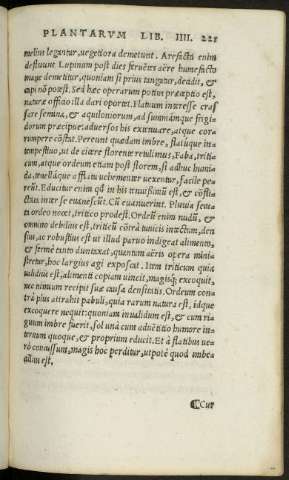 PLANTARVM LIB. IIII. 225
melius leguntur, uegetiora demetunt. Arefacta enim
destruunt. Lupinum post dies seruetus aëre humefacto
magis demetitur, quoniam si prius tangatur, decidit, &
api nō potest. Sed hæc operarum potius præceptio est,
naturæ officio illa dari oportet. Flatuum interesse cras
sare semina, & aquiloniorum, ad summámque frigi
dorum præcipuè: aduersos his exinanire, atque cor
rumpere cōstat. Pereunt quædam imbre, flatúque in
tempestiuo, ut de cicere florente retulimus. Faba, triti
cum, atque ordeum etiam post florem, si adhuc humi
da, tenelláque afflatu uehementer uexentur, facile pe
reūt. Educitur enim qđ in his tenuissimū est, & cōsla
ctus inter se euanescūt. Cū euanuerint. Pluuia serui
ti ordeo nocet, tritico prodest. Ordeū enim nudū, &
omnino debilius est, triticū cōtrà tunicis inectum, den
sius, ac robustius est ut illud paruo indigeat alimento,
& fermè tanto duntaxat, quantum aëris opera mini-
stretur, hoc largius agi exposcat. Item triticum quia
ualidius est, alimenti copiam uincit, magísq; excoquit,
nec nimium recipit suæ causa densitatis. Ordeum con-
trà plus attrahit pabuli, quia rarum natura est, idque
excoquere nequit: quoniam inualidum est, & cum ri-
guum imbre fuerit, sol unà cum aduētitio humore in-
ternum quoque, & proprium educit. Et à flatibus ue-
rò concussum, magis hoc perditur, utpotè quod imbe
cillius est.
Cur